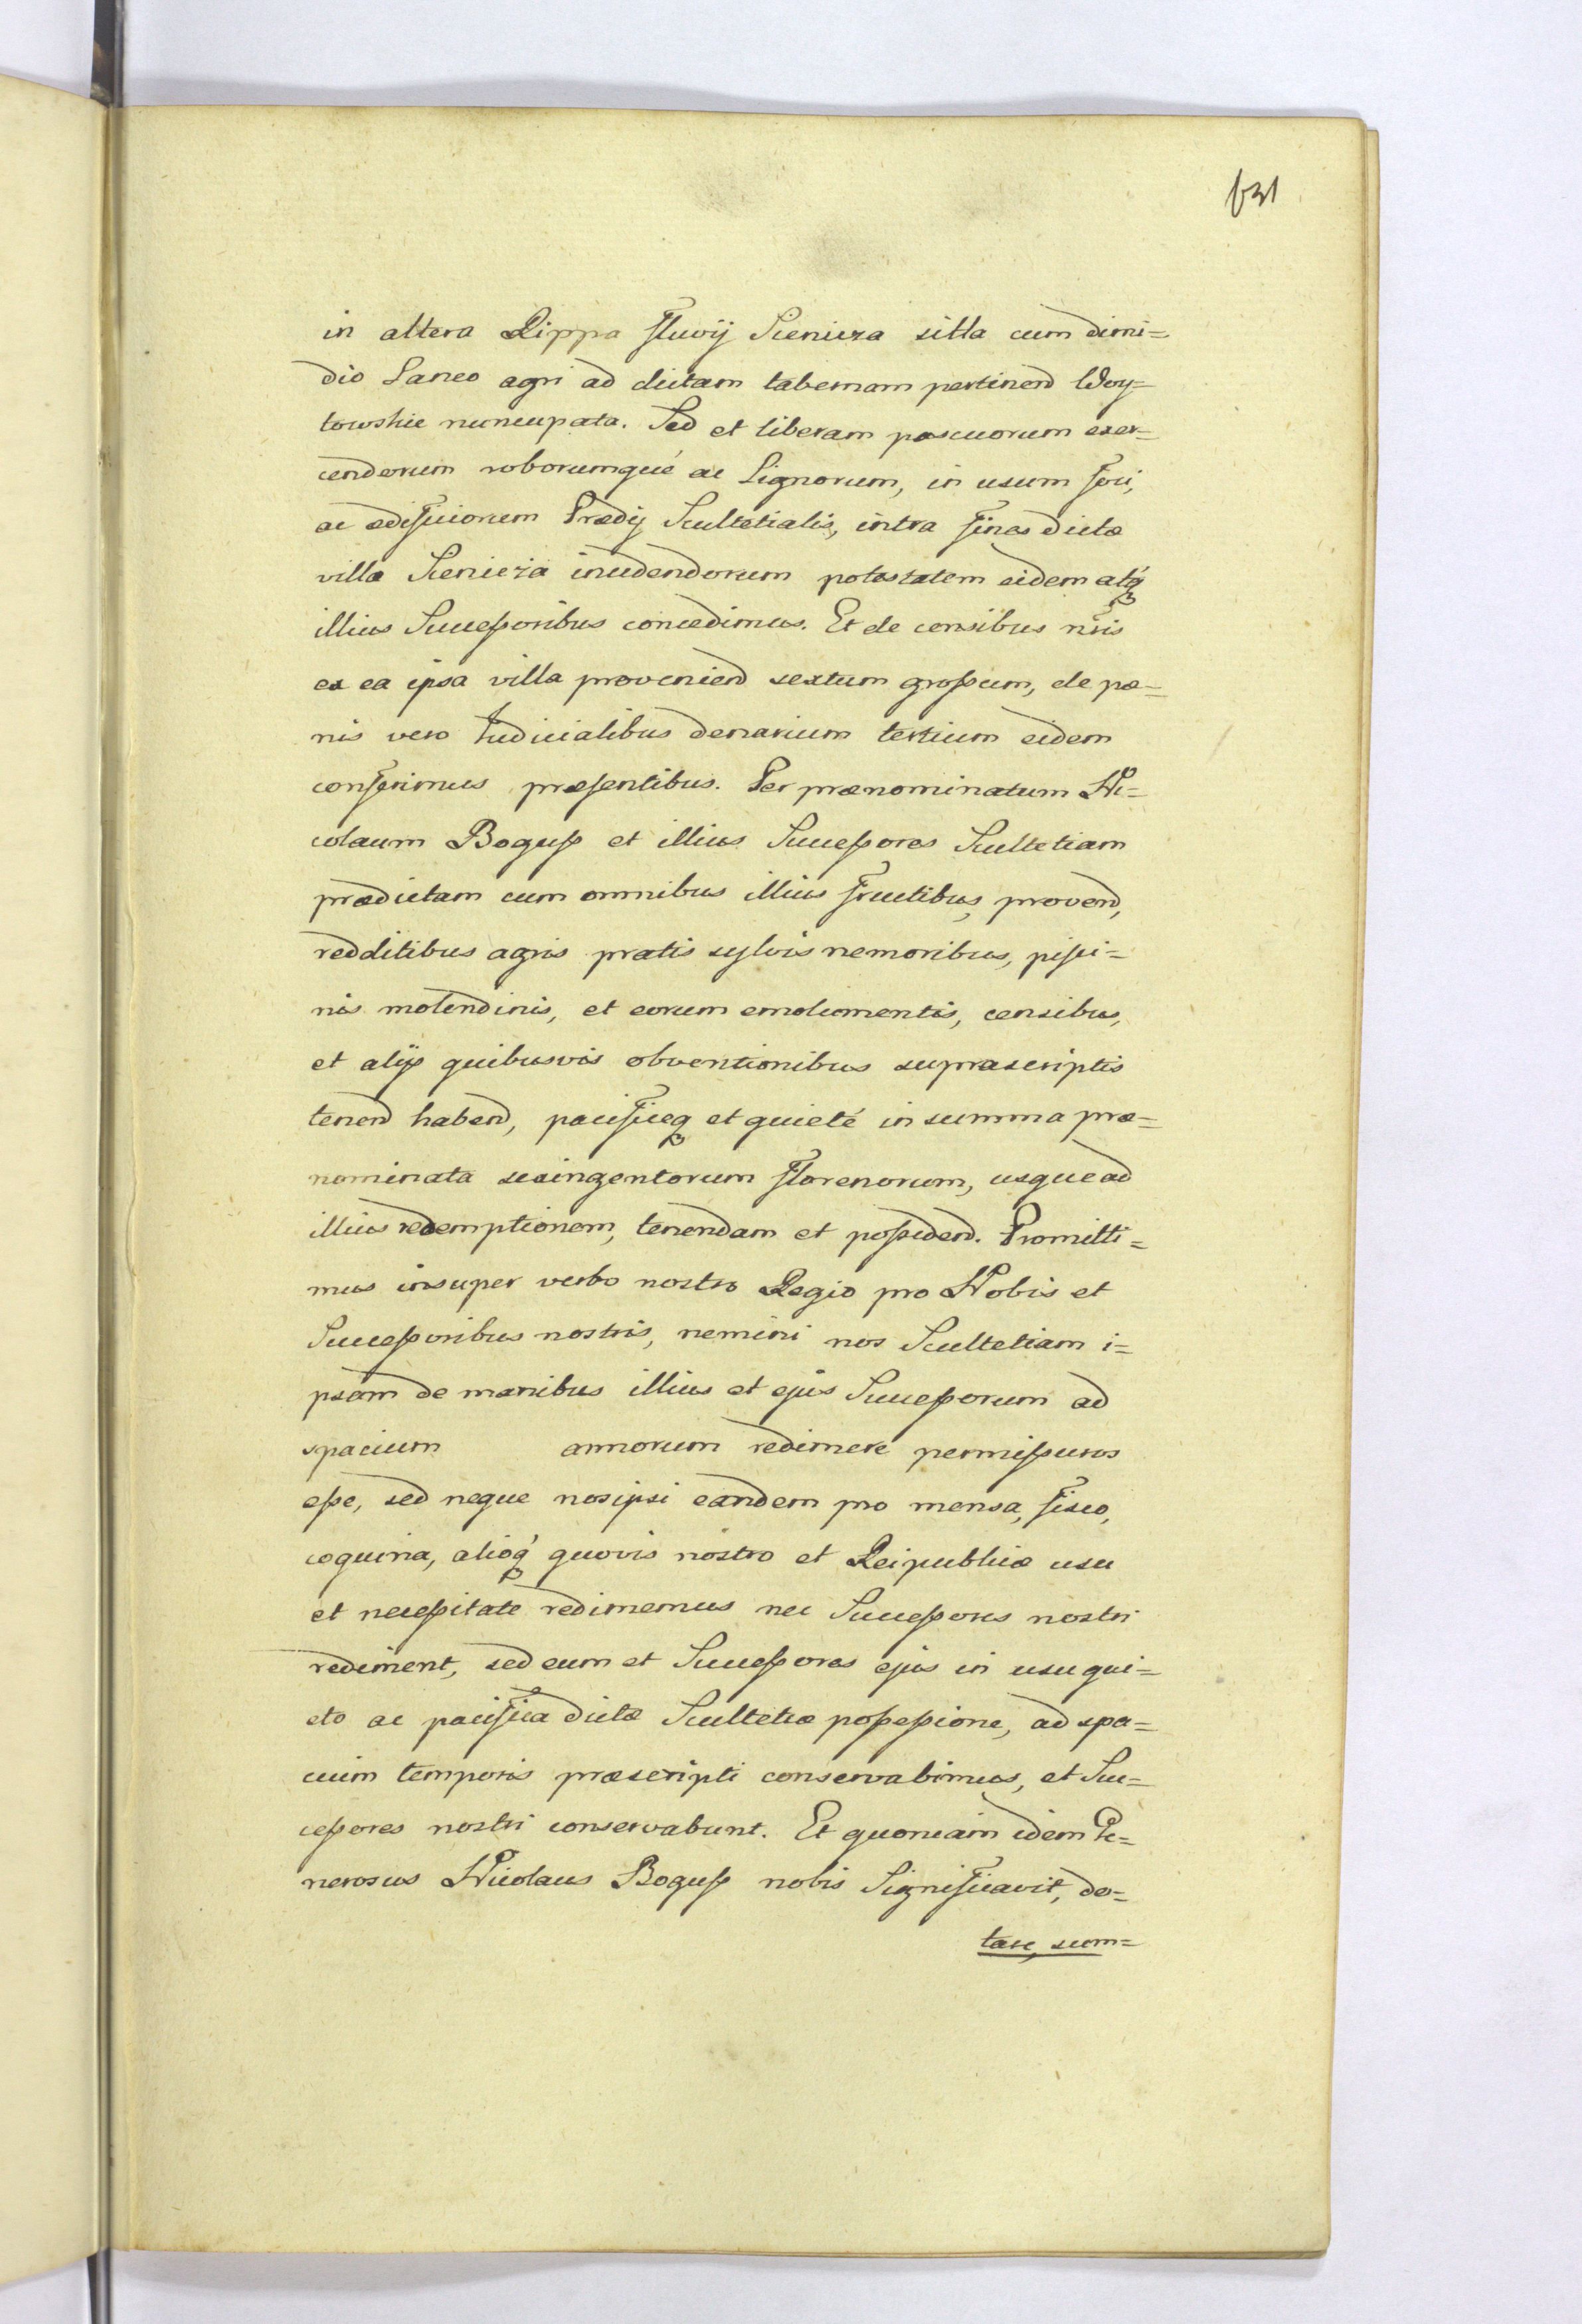 631
in altera Rippa fluvij Scenicza sitta cum dimi=
dio Laneo agri ad dictam tabernam pertinend Woy=
towskie nuncupata. Sed et liberam pascuorum exer=
cendorum roborumqué ac Lignorum, in usum foci,
ac ædificionem Prædij Scultetialis, intra fines dictæ
villæ Scenicza incidendorum potestatem eidem atq́
illius Successoribus concedimus. Et de censibus nr̃is
ex ea ipsa villa proveniend sextum grossum, de pæ=
nis vero Judicialibus denarium tertium eidem
conferimus præsentibus. Per prænominatum Ni=
colaum Boguss et illius Successores Scultetiam
prædictam cum omnibus illius fructibus, provend,
redditibus agris pratis sylvis nemoribus, pisci=
nis molendinis, et eorum emolumentis, censibus,
et alijs quibusvis obventionibus suprascriptis
tenend habend, pacificeq et quieté in summa præ=
nominata sexingentorum florenorum, usque ad
illius redemptionem, tenendam et possidend. Promitti=
mus insuper verbo nostro Regio pro Nobis et
Successoribus nostris, nemini nos Scultetiam i=
psam de manibus illius et ejus Successorum ad
spacium annorum redimere permissuros
esse, sed neque nosipsi eandem pro mensa, fisco,
coquina, alioq́ quovis nostro et Reipublicæ usu
et necessitate redimemus nec Successores nostri
rediment, sed eum et Successores ejus in usu qui=
eto ac pacifica dictæ Scultetiæ possessione, ad spa=
cium temporis præscripti conservabimus, et Suc=
cessores nostri conservabunt. Et quoniam idem Ge=
nerosus Nicolaus Boguss nobis Significavit, do=
tare, sum=